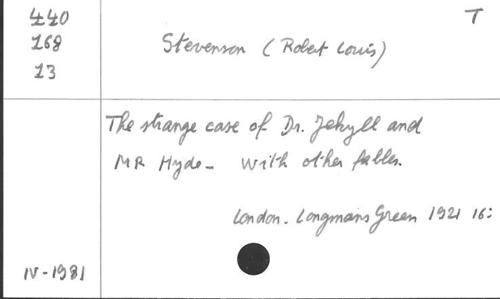 440
168
13
T
Stevenson (Robert Louis)
The strange case of Dr. Jekyll and
MR Hyde - with other fables.
London. Longmans Green 1921 16:
IV-1981